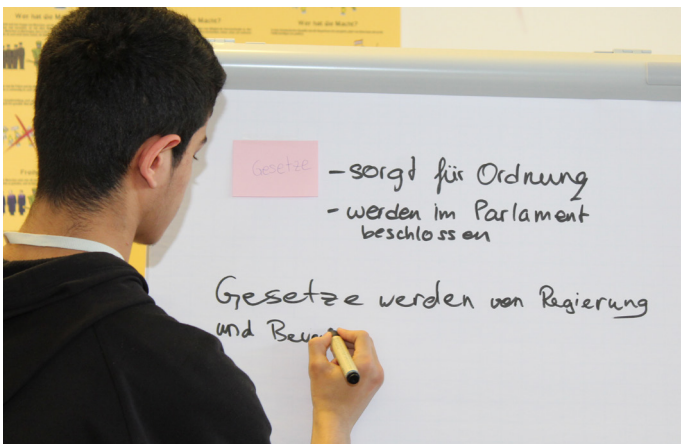 Was hat die Macht?
Gesetze
- sorgt für Ordnung
- werden im Parlament
beschlossen
Gesetze werden von Regierung
und